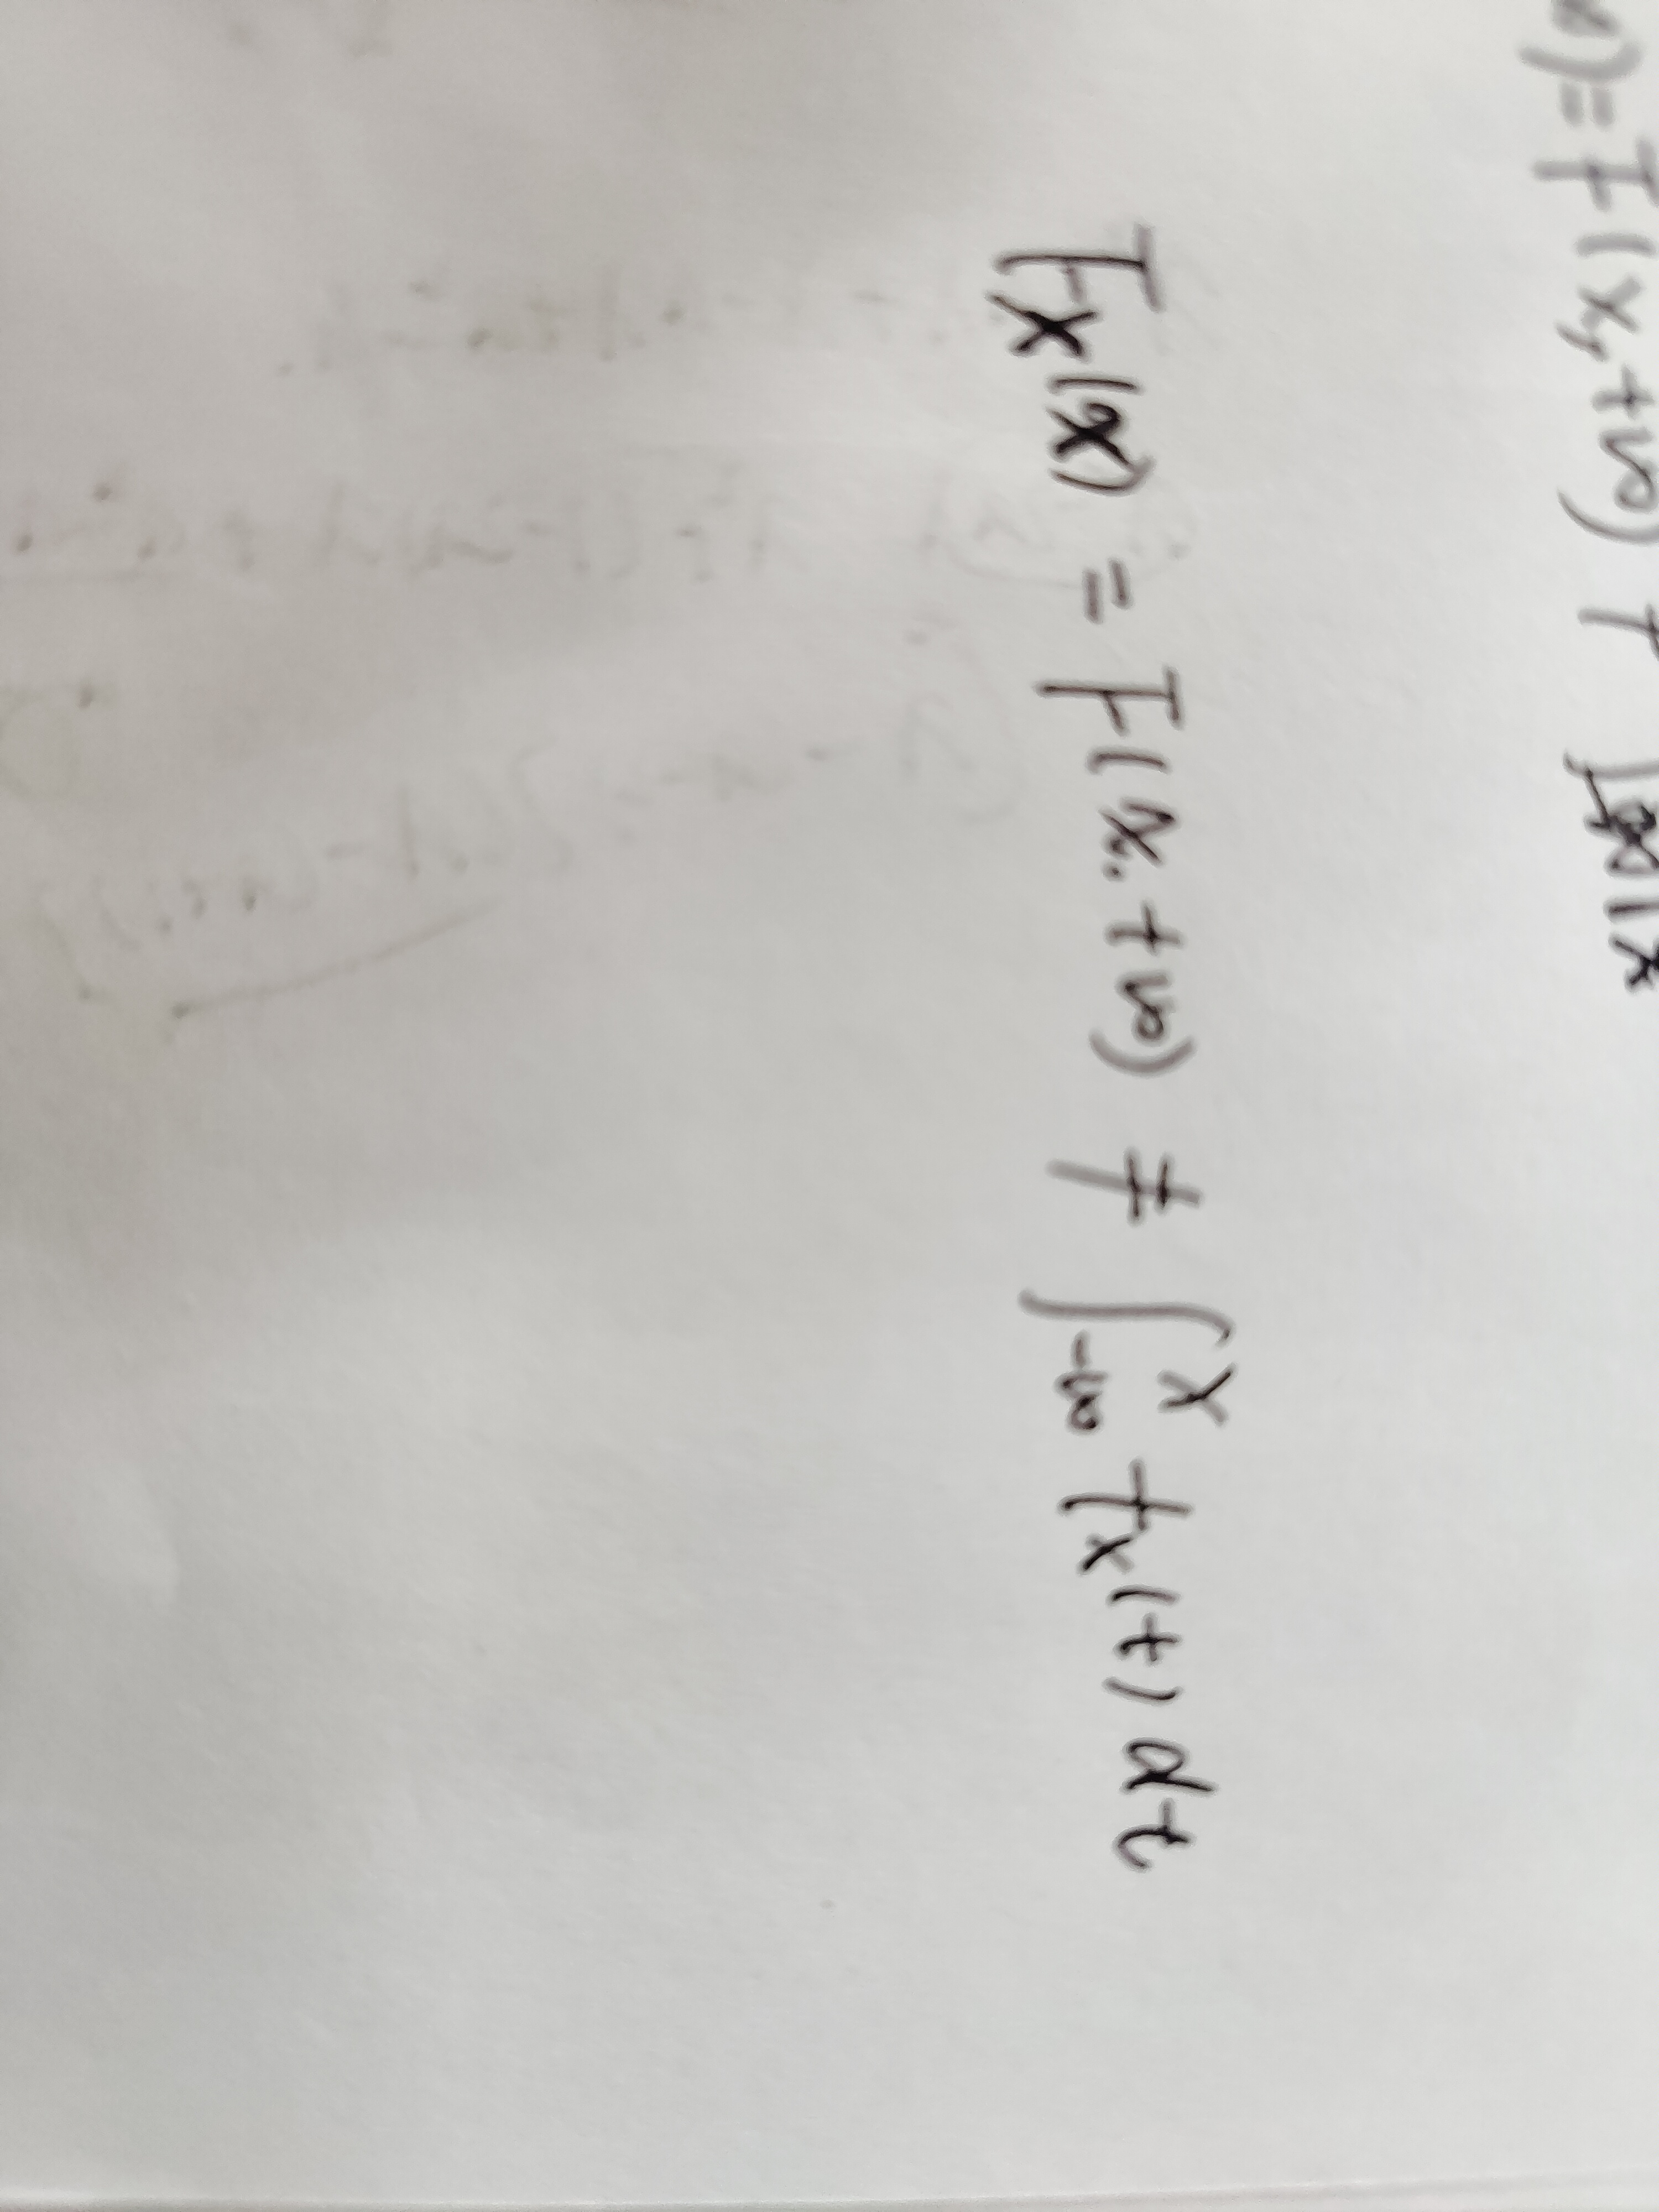 ) = F(x, +∞) ≠ ∫
F_X(x) = F(x, +∞) ≠ ∫_{-∞}^{x} f_X(t) dt